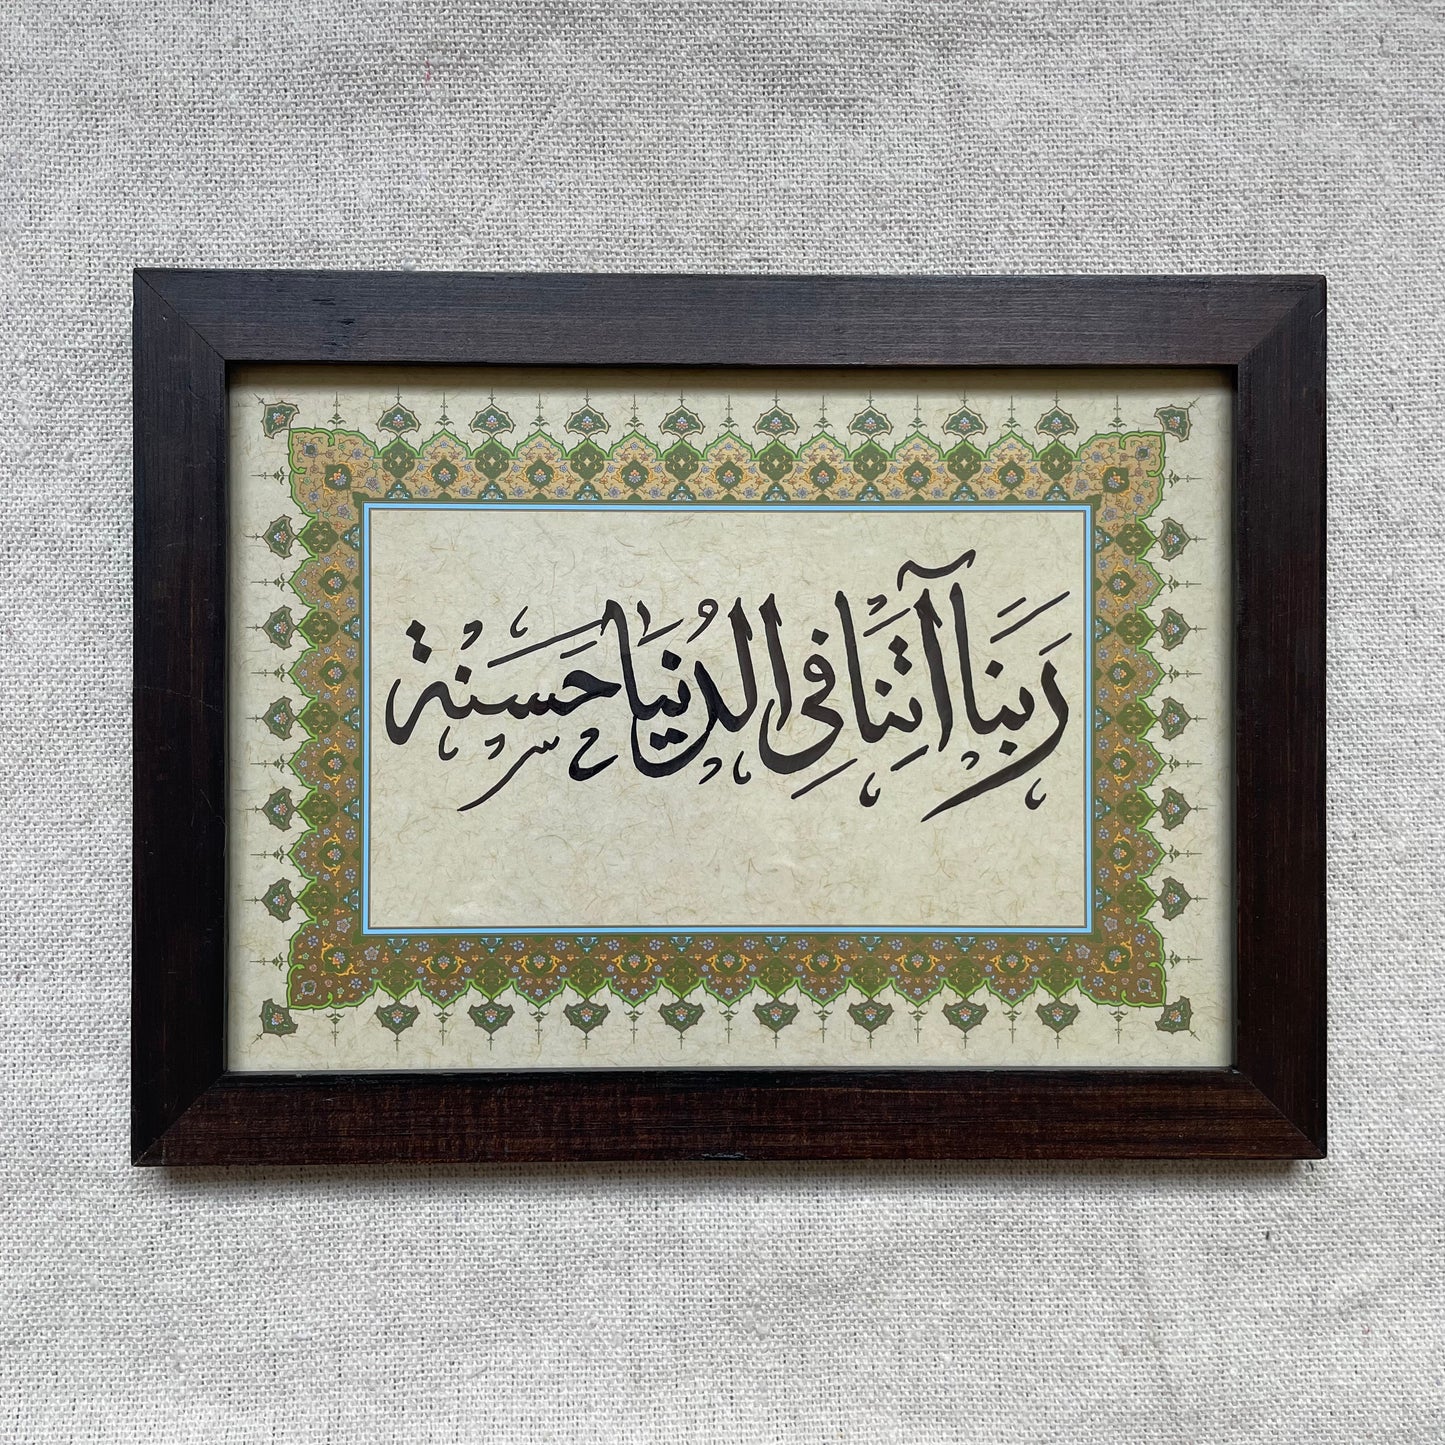 رَبَنَا آتِنَا فِي الدُنيَا حَسَنةً